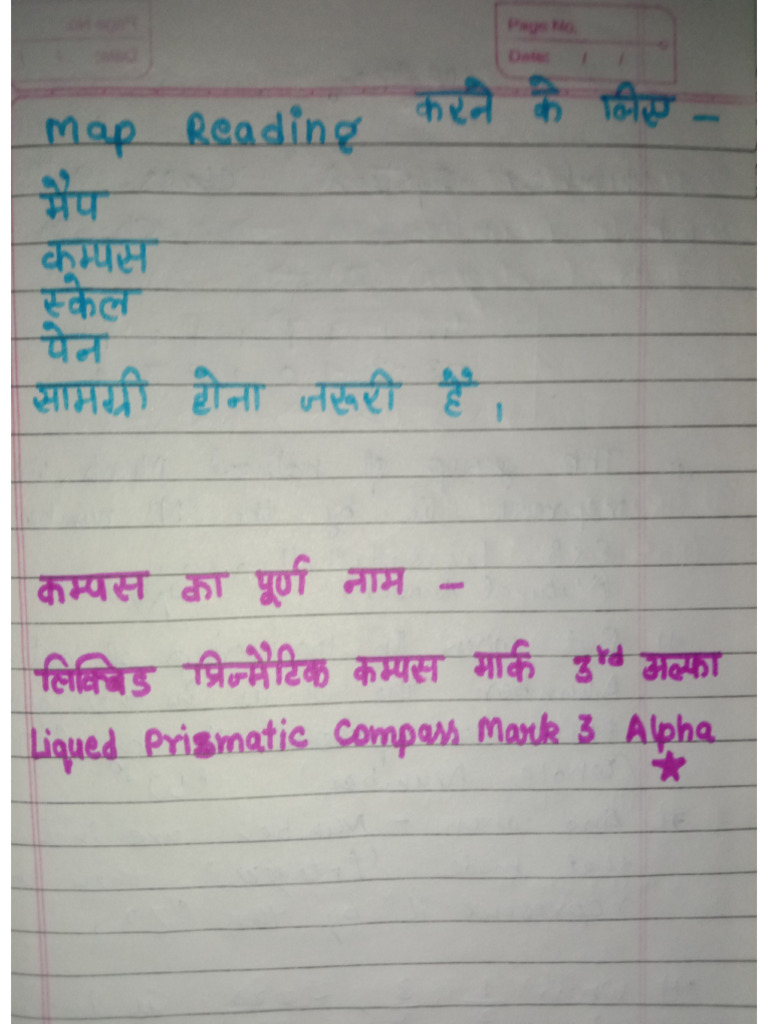 Page No.
Date: / /
Map Reading करने के लिए –
मैप
कम्पस
स्केल
पेन
सामग्री होना जरूरी है ।
कम्पस का पूर्ण नाम –
लिक्विड प्रिज्मैटिक कम्पस मार्क 3rd अल्फा
Liqued Prizmatic Compass Mark 3 Alpha